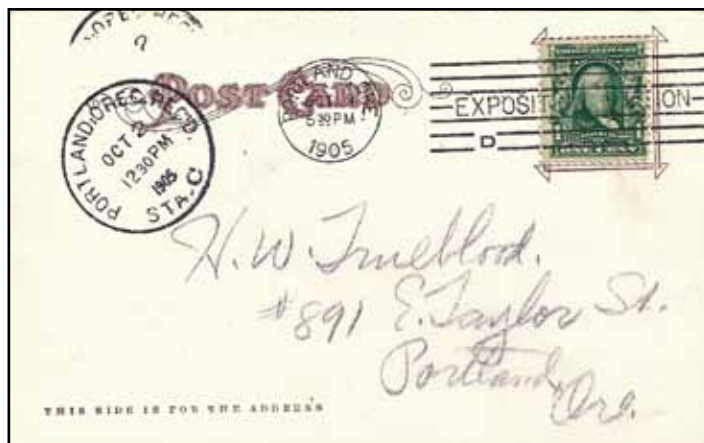 POST CARD
PORTLAND, OREG. REC'D.
OCT 2
12 30 PM
1905
STA. C
PORTLAND
5 30 PM
1905
EXPOSIT ION
D
H. W. Trueblood.
#891 E. Taylor St.
Portland,
Ore.
THIS SIDE IS FOR THE ADDRESS